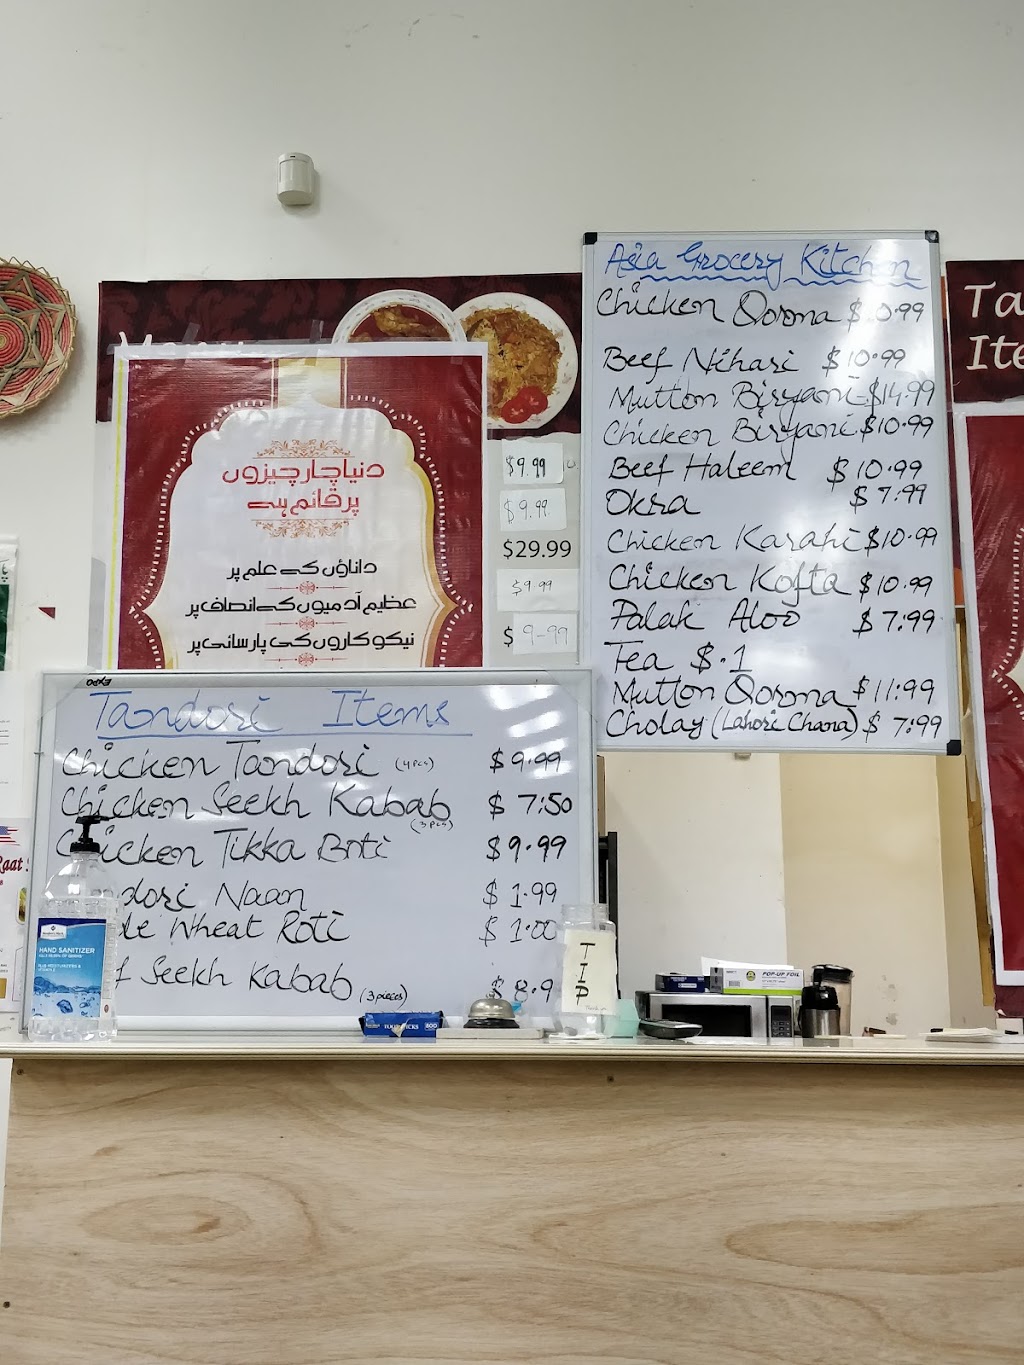 Asia Grocery Kitchen
Chicken Qorma $10.99
Beef Nihari $10.99
Mutton Biryani $14.99
Chicken Biryani $10.99
Beef Haleem $10.99
Okra $7.99
Chicken Karahi $10.99
Chicken Kofta $10.99
Palak Aloo $7.99
Tea $.1
Mutton Qorma $11.99
Cholay (Lahori Chana) $7.99
Ta
Ite
دنیا چار چیزوں
پر قائم ہے
داناؤں کے علم پر
عظیم آدمیوں کے انصاف پر
نیکو کاروں کی پارسائی پر
$9.99
$9.99
$29.99
$9.99
$9-99
EXPO
Tandori Items
Chicken Tandori (4pcs) $9.99
Chicken Seekh Kabab (3pcs) $7:50
Chicken Tikka Boti $9.99
ndori Naan $1.99
le Wheat Roti $1.00
f Seekh Kabab (3 pieces) $8.9
Raat
HAND SANITIZER
TIP
POP-UP FOIL